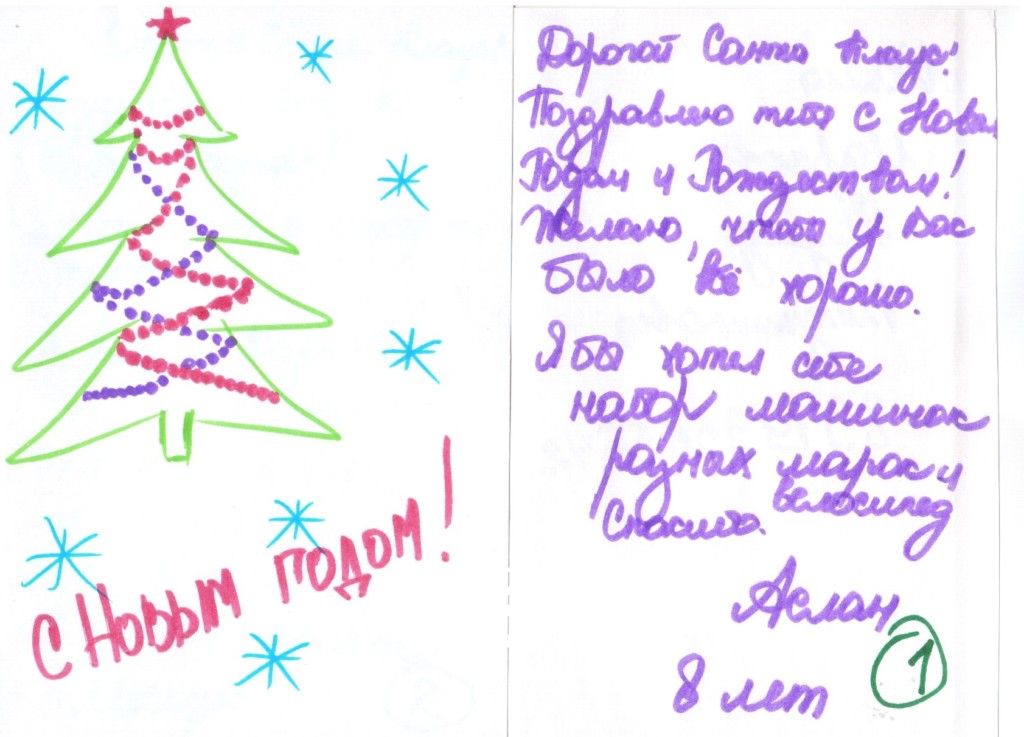 С Новым годом!
Дорогой Санта Клаус!
Поздравляю тебя с Новым
Годом и Рождеством!
Желаю, чтобы у Вас
было всё хорошо.
Я бы хотел себе
набор машинок
разных марок и
велосипед
Спасибо.
Аслан
8 лет
1